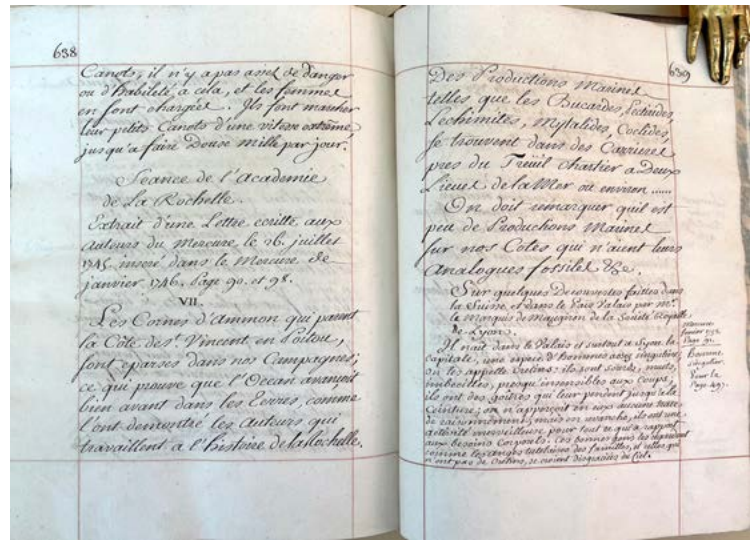 638
Canots; il n'y a pas assez de danger
ou d'habileté à cela, et les femmes
en sont chargées. Ils font marcher
leur petits Canots d'une vitesse extrême,
jusqu'a faire Douse mille par jour.
Seance de l'academie
de La Rochelle.
Extrait d'une Lettre ecritte aux
auteurs du Mercure le 26. juillet
1745 inseré dans le Mercure de
janvier 1746. Page 90. et 98.
VII.
Les Cornes d'ammon qui pavent
la Côte de St. Vincent en Poitou,
sont eparses dans nos Campagnes;
ce qui prouve que l'Ocean avançoit
bien avant dans les Terres, comme
l'ont demontré les auteurs qui
travaillent a l'histoire de la Rochelle.
639
Des Productions Marines
telles que les Bucardes,
Mytalides, Coclides,
se trouvent dans des Carrieres
pres du Treüil chartier a Deux
Lieues de la Mer ou environ ......
On doit remarquer quil est
peu de Productions Marines
sur nos Cotes qui n'aient leurs
analogues fossiles &c.
Sur quelques Decouvertes faittes dans
la Suisse, et dans le Païs Valais par Mr.
le Marquis de Maugiron de la Societé Royalle
de Lyon.
Il nait dans le Valais et surtout a Syon la
capitale, une espece d'hommes assez singuliere,
on les appelle Cretins: ils sont sourds, muets,
imbecilles, presque insensibles aux Coups;
ils ont des goitres qui leur pendent jusqu'a la
Ceinture; on n'apperçoit en eux aucune trace
de raisonnement, mais en revanche, ils ont une
activité merveilleuse pour tout ce qui a rapport
aux besoins Corporels. Ces bonnes gens les regardent
comme les anges tutelaires des familles, et celles qui
n'ont pas de Cretins, se croient disgraciés du Ciel.
Mercure
fevrier
Page
homme
singulier.
Page 497.